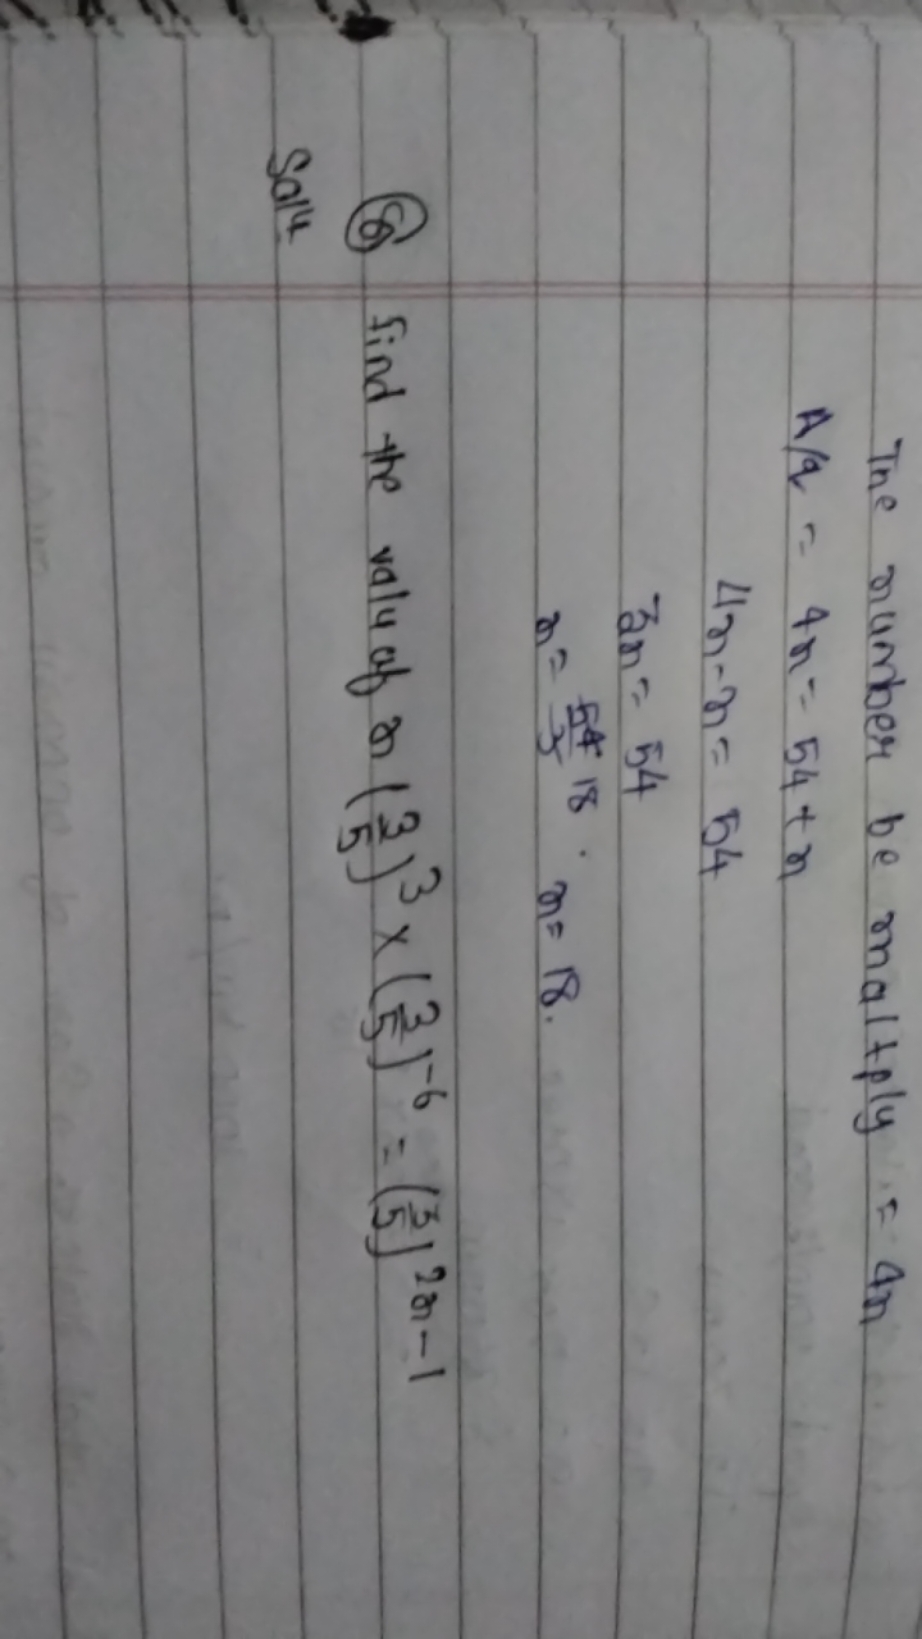 The number be maltply = 4x
A/q = 4x = 54 + x
4x - x = 54
3x = 54
x = 54/3 18 . x = 18.
6 find the valu of x (3/5)^3 × (3/5)^-6 = (3/5)^2x-1
Sol4